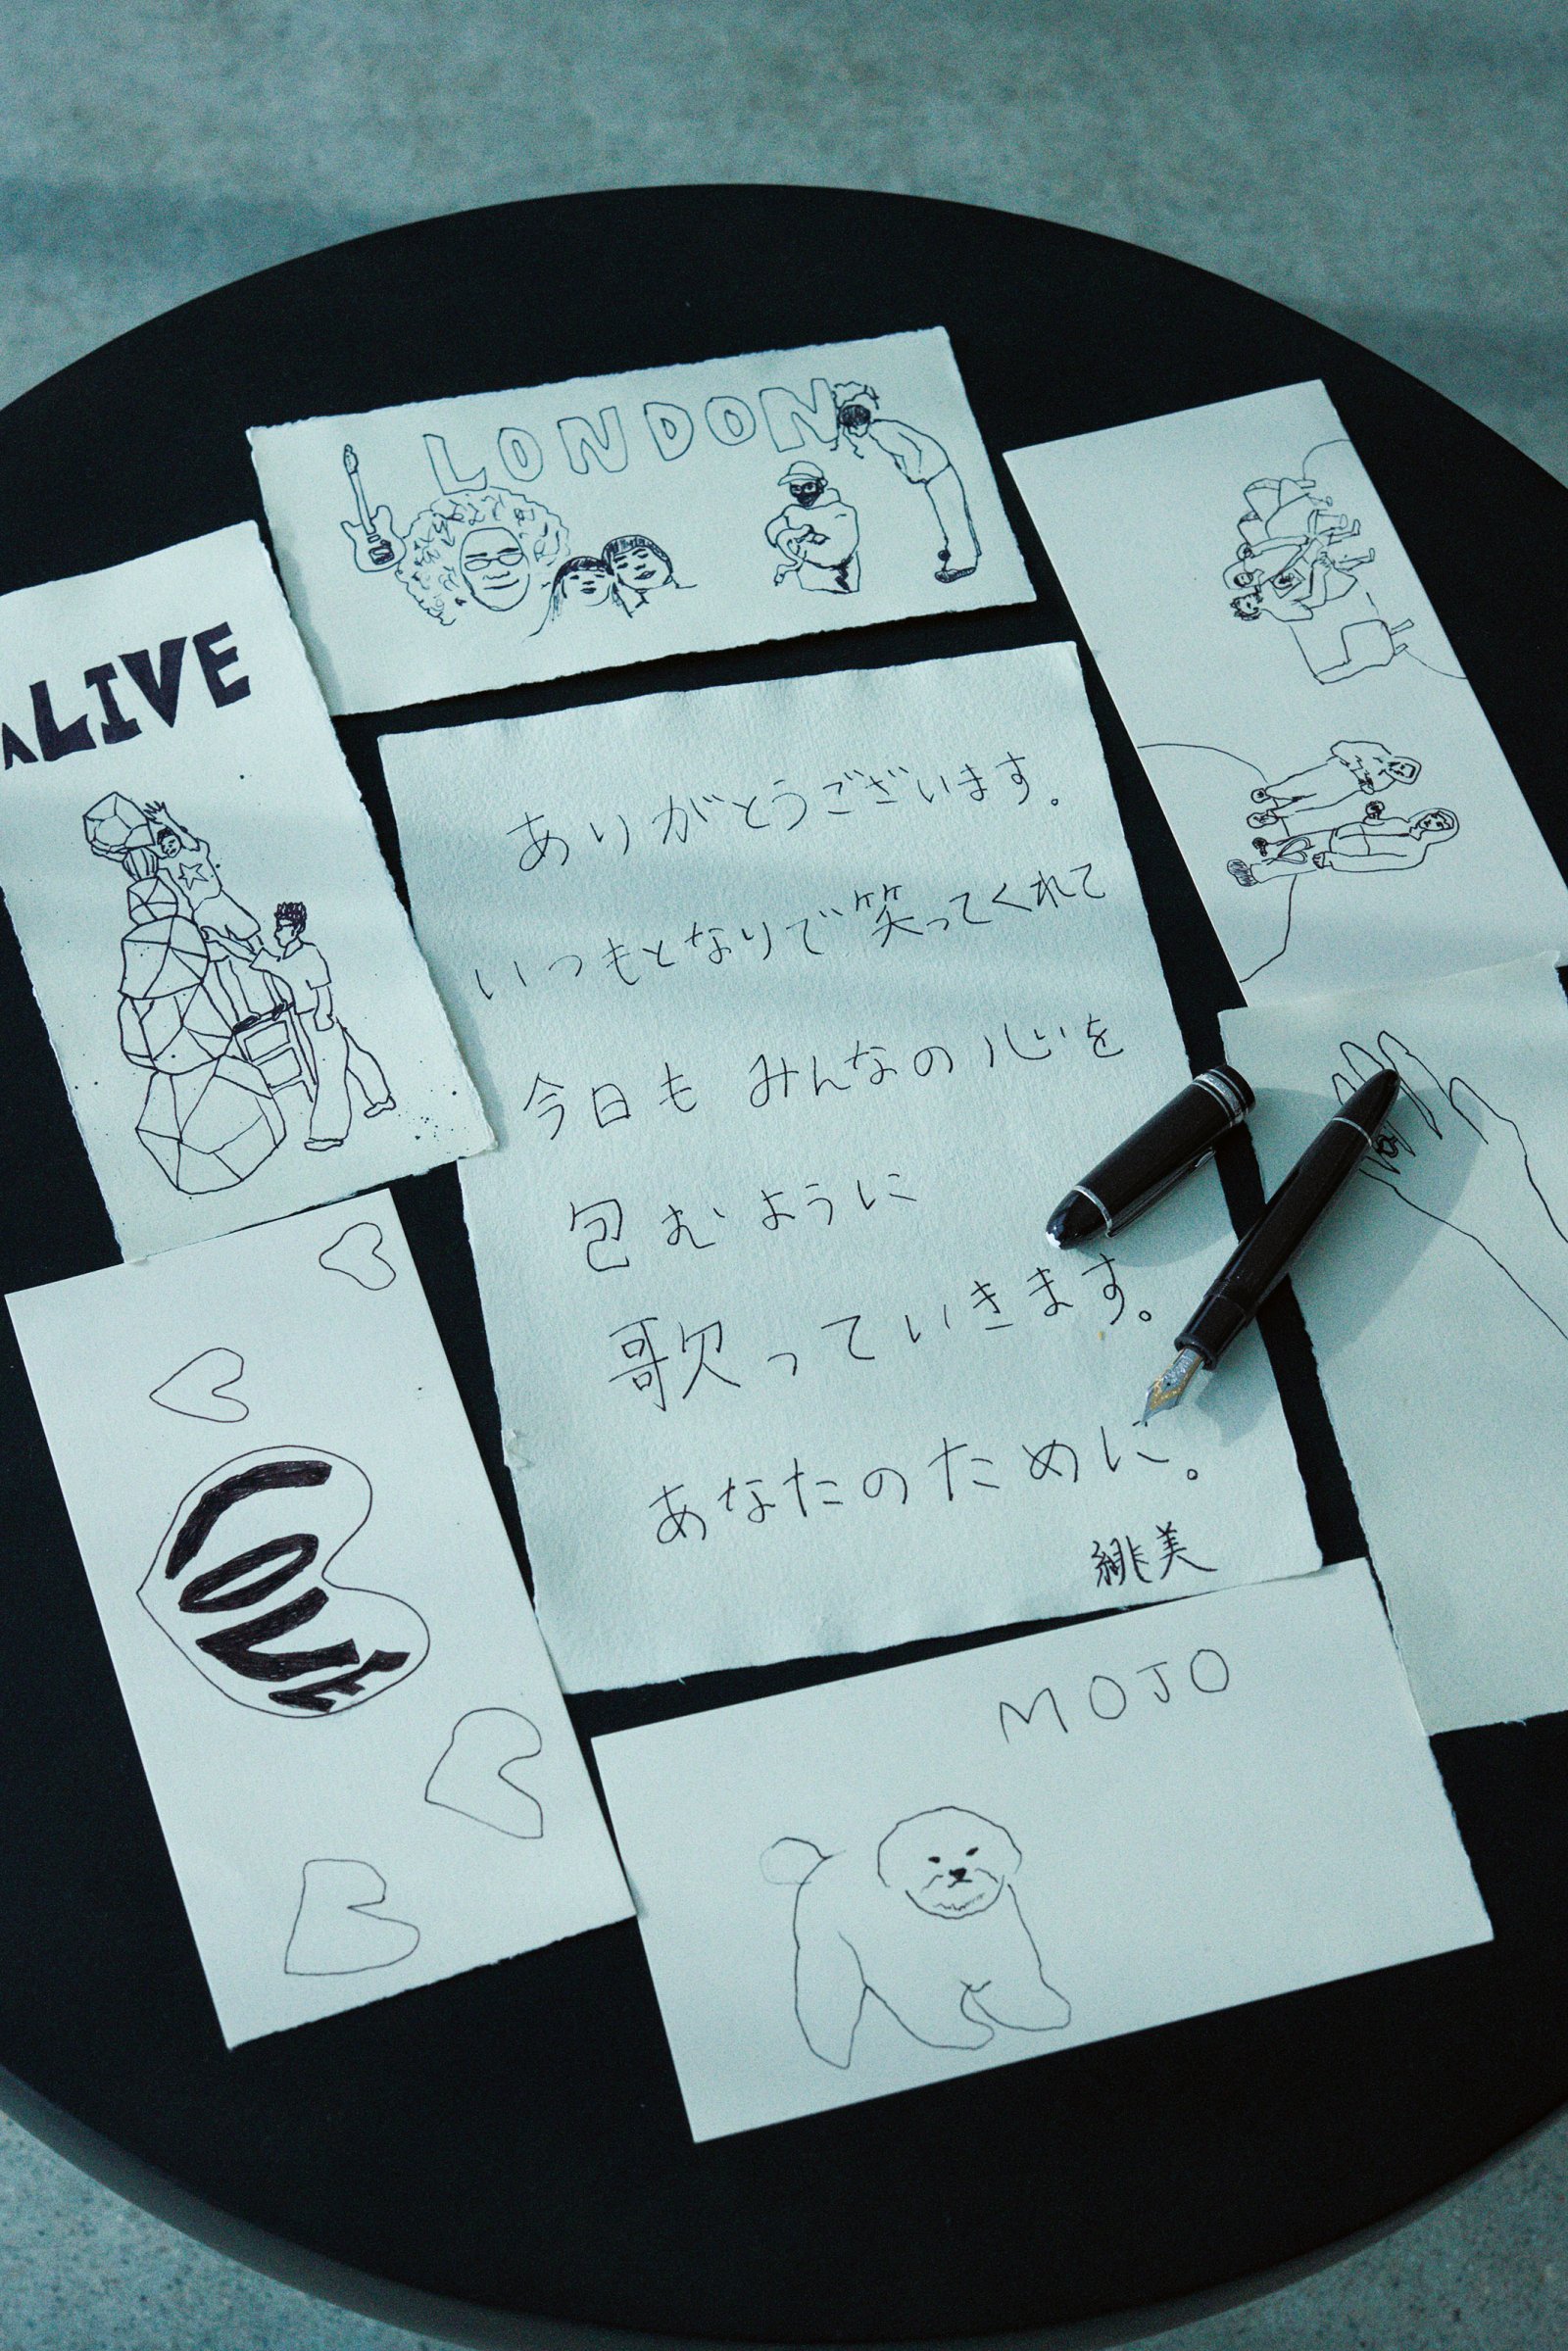 LONDON
ALIVE
ありがとうございます。
いつもとなりで笑ってくれて
今日もみんなの心を
包むように
歌っていきます。
あなたのために。
緋美
LOVE
MOJO